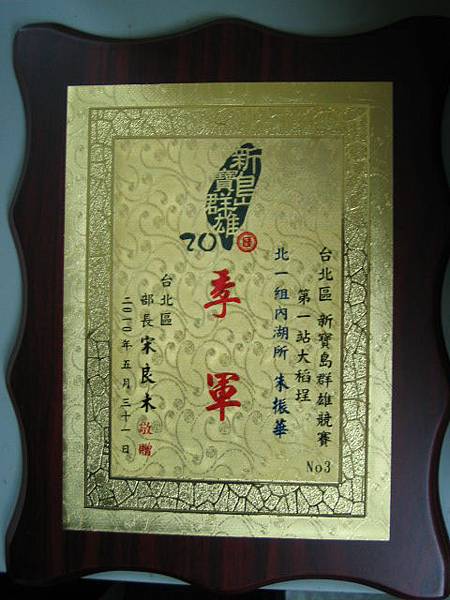 新寶島
群雄
20
台北區 新寶島群雄競賽
第一站大稻埕
北一組內湖所 朱振華
No3
季軍
台北區
部長 宋良未 敬贈
二○一○年五月三十一日